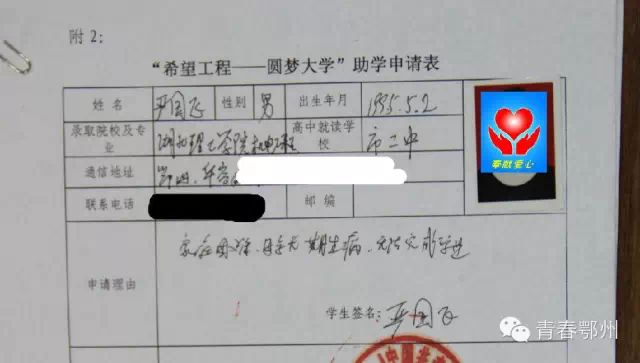 附2：
“希望工程——圆梦大学”助学申请表
姓名 严国飞 性别 男 出生年月 1995.5.2
录取院校及专业 湖北理工学院机电工程 高中就读学校 市二中
通信地址 鄂州、华容
联系电话 邮编
奉献爱心
申请理由 家庭困难、母亲长期生病、无法完成学业
学生签名： 严国飞
青春鄂州